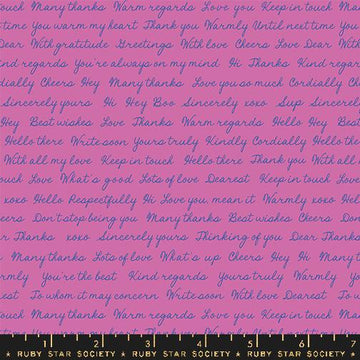 ouch Many thanks Warm regards Love you Keep in touch Many
time You warm my heart Thank you Warmly Until next time You
Dear With gratitude Greetings With love Cheers Love Dear With
ind regards You're always on my mind Hi Thanks Kind regards
dially Cheers Hey Many thanks Love you so much Cordially Che
Sincerely yours Hi Hey Boo Sincerely xoxo Sup Sincerely
Hey Best wishes Love Thanks Warm regards Hello Hey Be
Hello there Write soon Yours truly Kindly Cordially Hello the
With all my love Keep in touch Hello there Thank you With all
ouch Love What's good Lots of love Dearest Keep in touch Love
xoxo Hello Respectfully Hi Love you, mean it Warmly xoxo H
eers Don't stop being you Many thanks Best wishes Cheers Don
r Thanks xoxo Sincerely yours Thinking of you Dear Thank
Many thanks Lots of love What's up Cheers Hey Hi Many th
rmly You're the best Kind regards Yours truly Warmly Yo
est To whom it may concern Write soon With love Dearest To
ouch Many thanks Warm regards Love you Keep in touch Many
1 2 3 4 5 6 7
RUBY STAR SOCIETY ★ RUBY STAR SOCIETY ★ RUBY STAR SOCIETY ★ RUBY